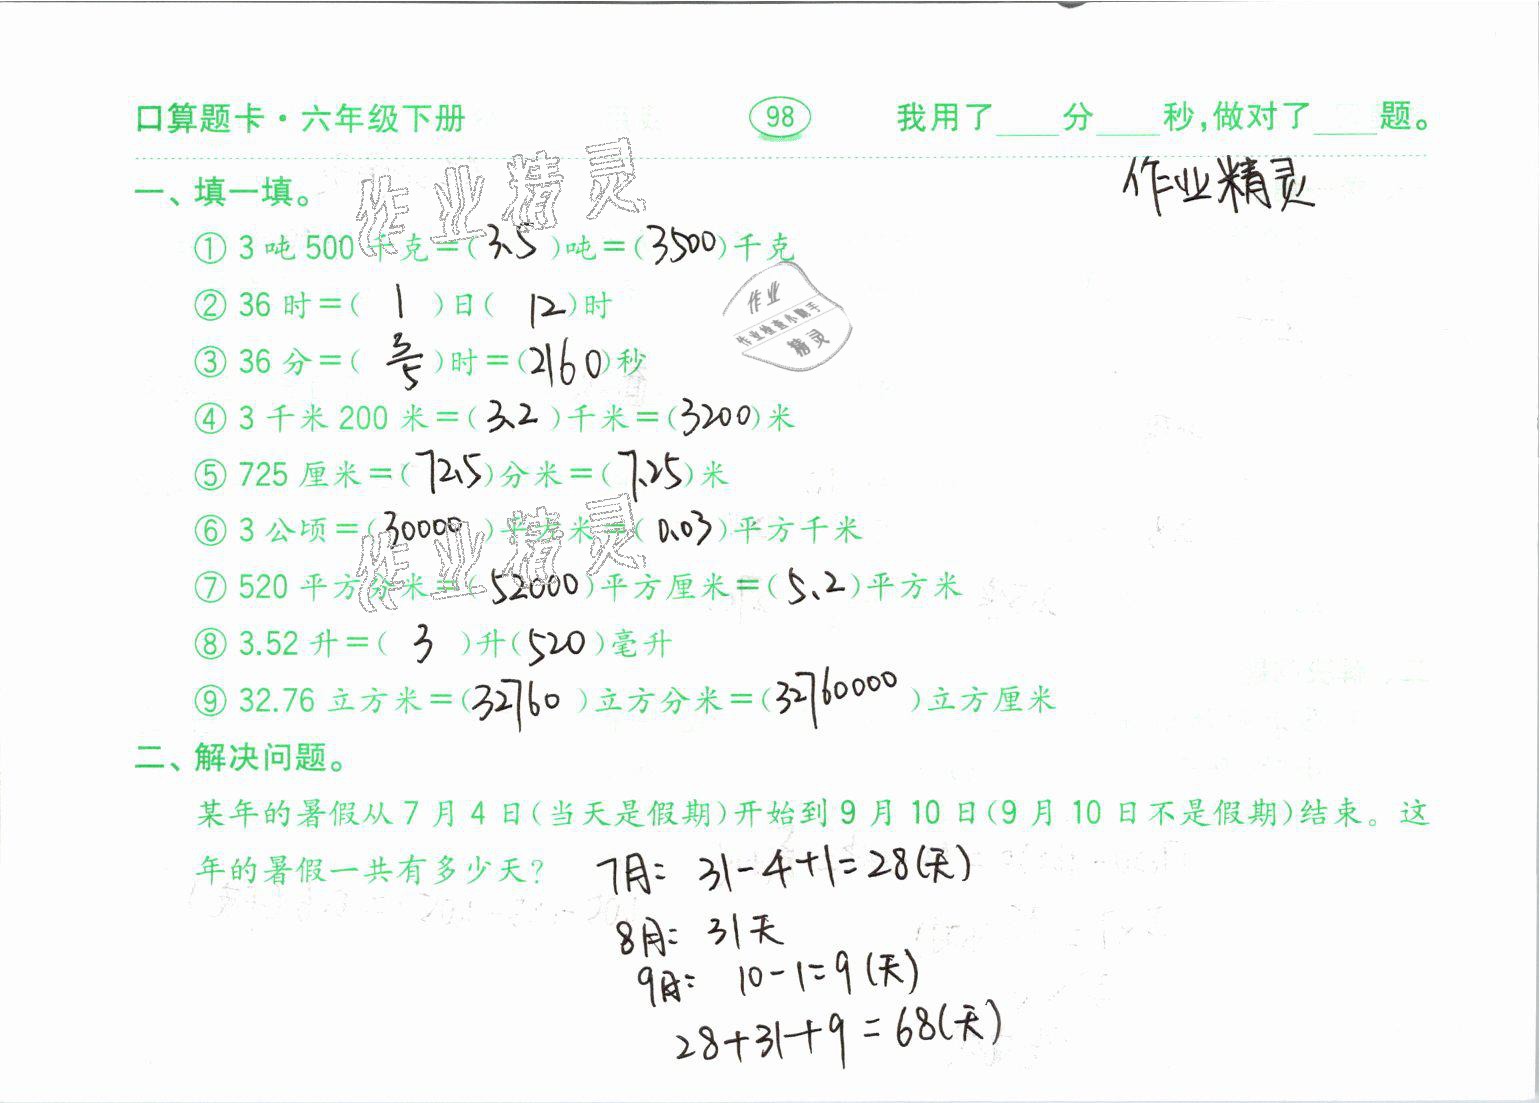 口算题卡·六年级下册 98 我用了____分____秒,做对了____题。
作业精灵
一、填一填。
① 3 吨 500 千克=(3.5)吨=(3500)千克
② 36 时=(1)日(12)时
③ 36 分=(3/5)时=(2160)秒
④ 3 千米 200 米=(3.2)千米=(3200)米
⑤ 725 厘米=(72.5)分米=(7.25)米
⑥ 3 公顷=(30000)平方米=(0.03)平方千米
⑦ 520 平方分米=(52000)平方厘米=(5.2)平方米
⑧ 3.52 升=(3)升(520)毫升
⑨ 32.76 立方米=(32760)立方分米=(32760000)立方厘米
作业精灵
作业
作业检查小助手
精灵
作业精灵
二、解决问题。
某年的暑假从 7 月 4 日(当天是假期)开始到 9 月 10 日(9 月 10 日不是假期)结束。这
年的暑假一共有多少天?
7月: 31-4+1=28(天)
8月: 31天
9月: 10-1=9(天)
28+31+9=68(天)